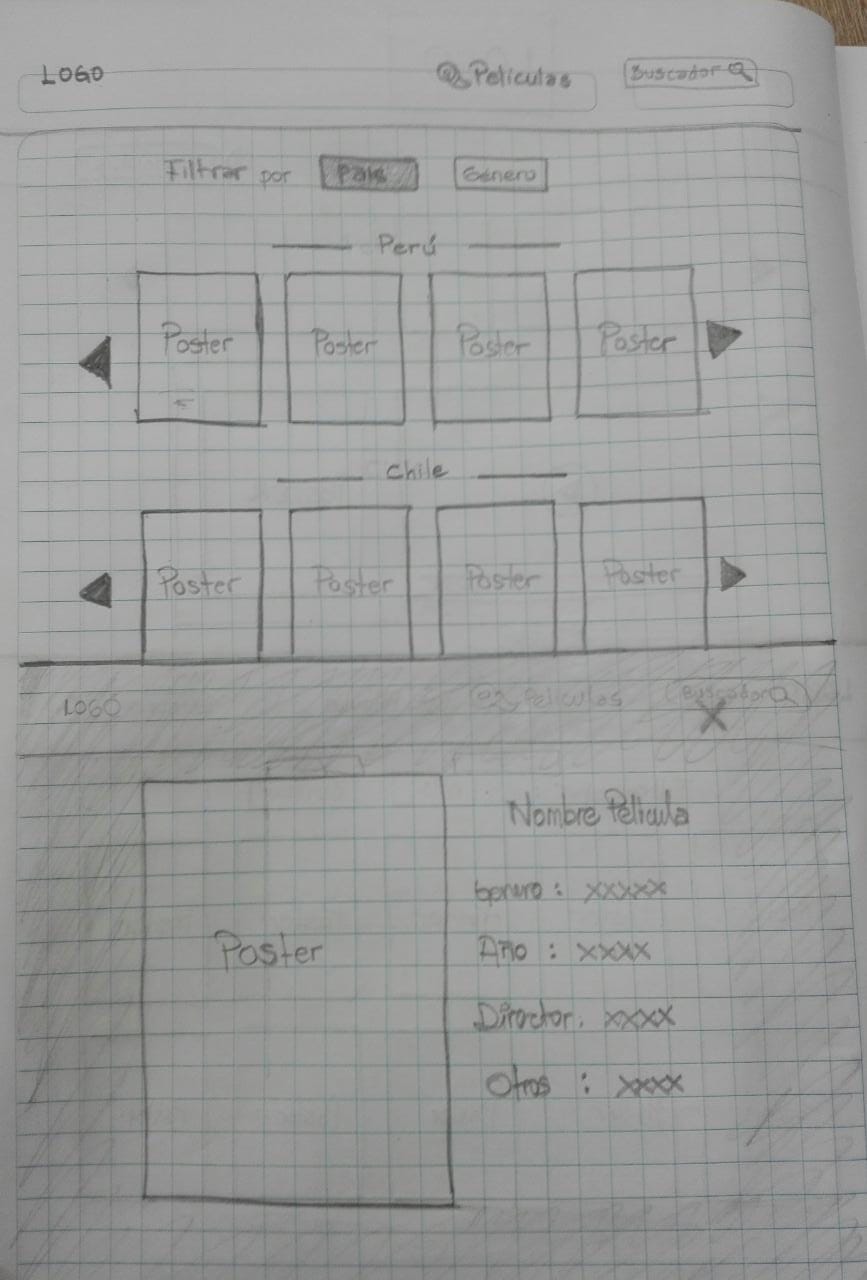 LOGO Peliculas Buscador
Filtrar por País Género
Perú
Poster Poster Poster Poster
Chile
Poster Poster Poster Poster
LOGO Peliculas Buscador
X
Nombre Pelicula
Poster
Genero : xxxxx
Año : xxxx
Director: xxxx
Otros : xxxx